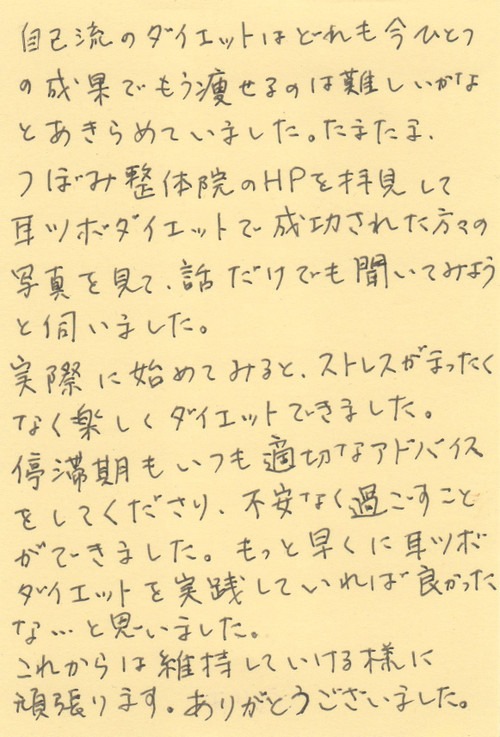 自己流のダイエットはどれも今ひとつ
の成果でもう痩せるのは難しいかな
とあきらめていました。たまたま、
つぼみ整体院のHPを拝見して
耳ツボダイエットで成功された方々の
写真を見て、話だけでも聞いてみよう
と伺いました。
実際に始めてみると、ストレスがまったく
なく楽しくダイエットできました。
停滞期もいつも適切なアドバイス
をしてくださり、不安なく過ごすこと
ができました。もっと早くに耳ツボ
ダイエットを実践していれば良かった
な…と思いました。
これからは維持していける様に
頑張ります。ありがとうございました。